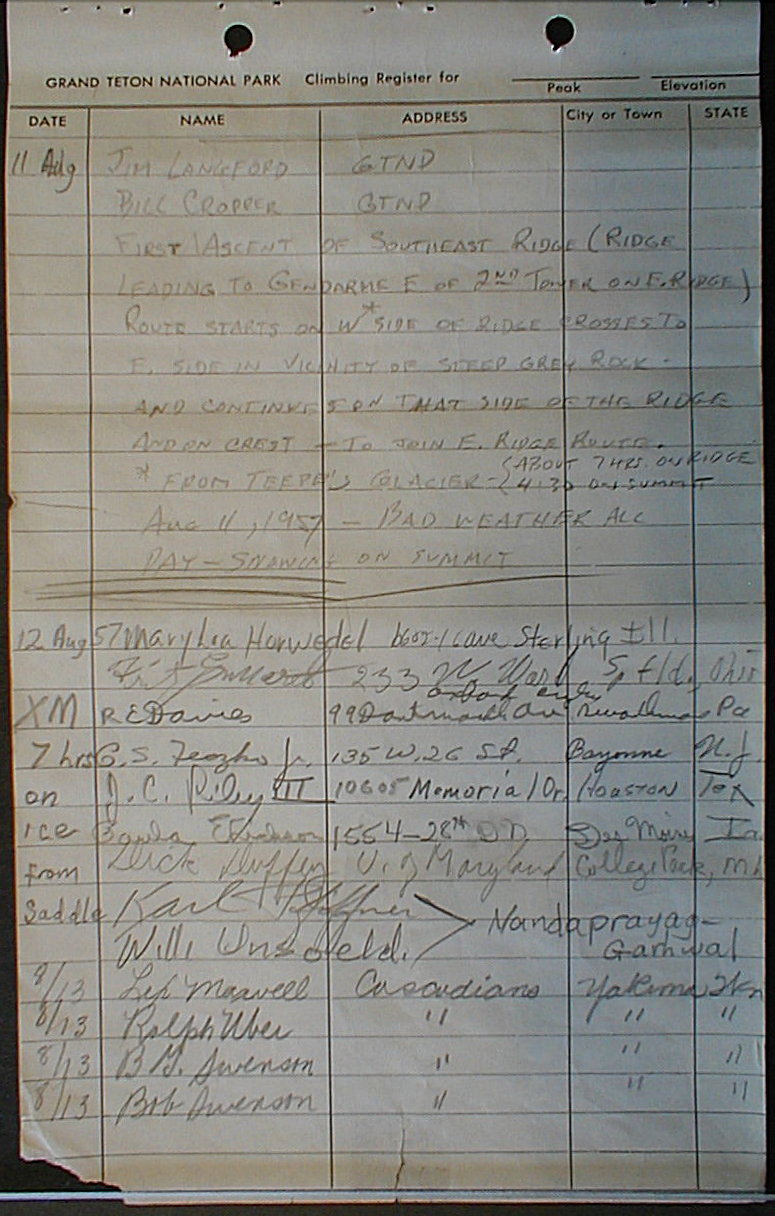 GRAND TETON NATIONAL PARK Climbing Register for
Peak Elevation
DATE NAME ADDRESS City or Town STATE
11 Aug JIM LANGFORD GTNP
BILL CROPPER GTNP
FIRST ASCENT OF SOUTHEAST RIDGE (RIDGE
LEADING TO GENDARME E OF 2ND TOWER ON E. RIDGE)
ROUTE STARTS ON W* SIDE OF RIDGE CROSSES TO
E. SIDE IN VICINITY OF STEEP GREY ROCK -
AND CONTINUES ON THAT SIDE OF THE RIDGE
AND ON CREST - TO JOIN E. RIDGE ROUTE.
* FROM TEEPE'S GLACIER - { ABOUT 7 HRS. ON RIDGE
4:30 ON SUMMIT
AUG 11, 1957 - BAD WEATHER ALL
DAY - SNOWING ON SUMMIT
12 Aug 57 Mary Lea Horwedel Ave Sterling Ill.
233 W. Ward Spfld, Ohio
XM R E Davies 99 Dartmouth Ave Pa
7 hrs G. S. Jr. 135 W. 26 St. Bayonne N.J.
on J. C. Riley III 10605 Memorial Dr. HOUSTON Tex
ice 1554-28th Des Moines Ia.
from Dick Duffey U. of Maryland College Park, Md
Saddle Karl
Willi Unsoeld. > Nandaprayag-
Garhwal
8/13 Lex Maxwell Cascadians Yakima Wn
8/13 Ralph Uber " " "
8/13 B. Swenson " " "
8/13 Bob Swenson " " "